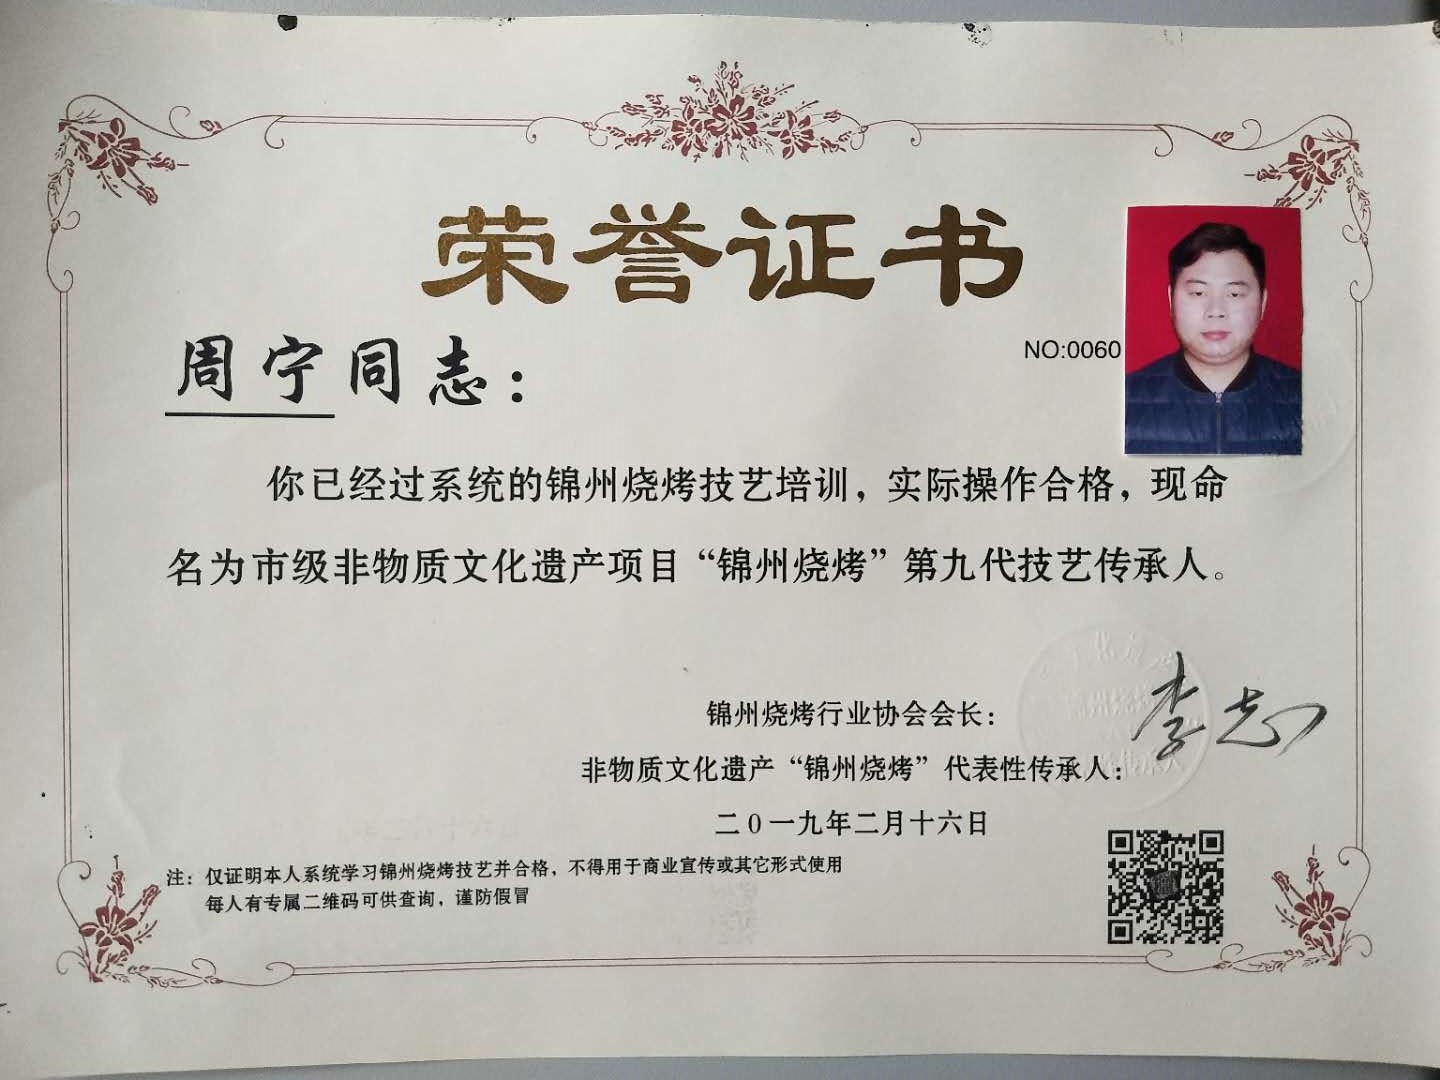 荣誉证书
NO:0060
周宁同志：
你已经过系统的锦州烧烤技艺培训，实际操作合格，现命
名为市级非物质文化遗产项目“锦州烧烤”第九代技艺传承人。
锦州烧烤行业协会会长：
李志
非物质文化遗产“锦州烧烤”代表性传承人：
二0一九年二月十六日
注：仅证明本人系统学习锦州烧烤技艺并合格，不得用于商业宣传或其它形式使用
每人有专属二维码可供查询，谨防假冒